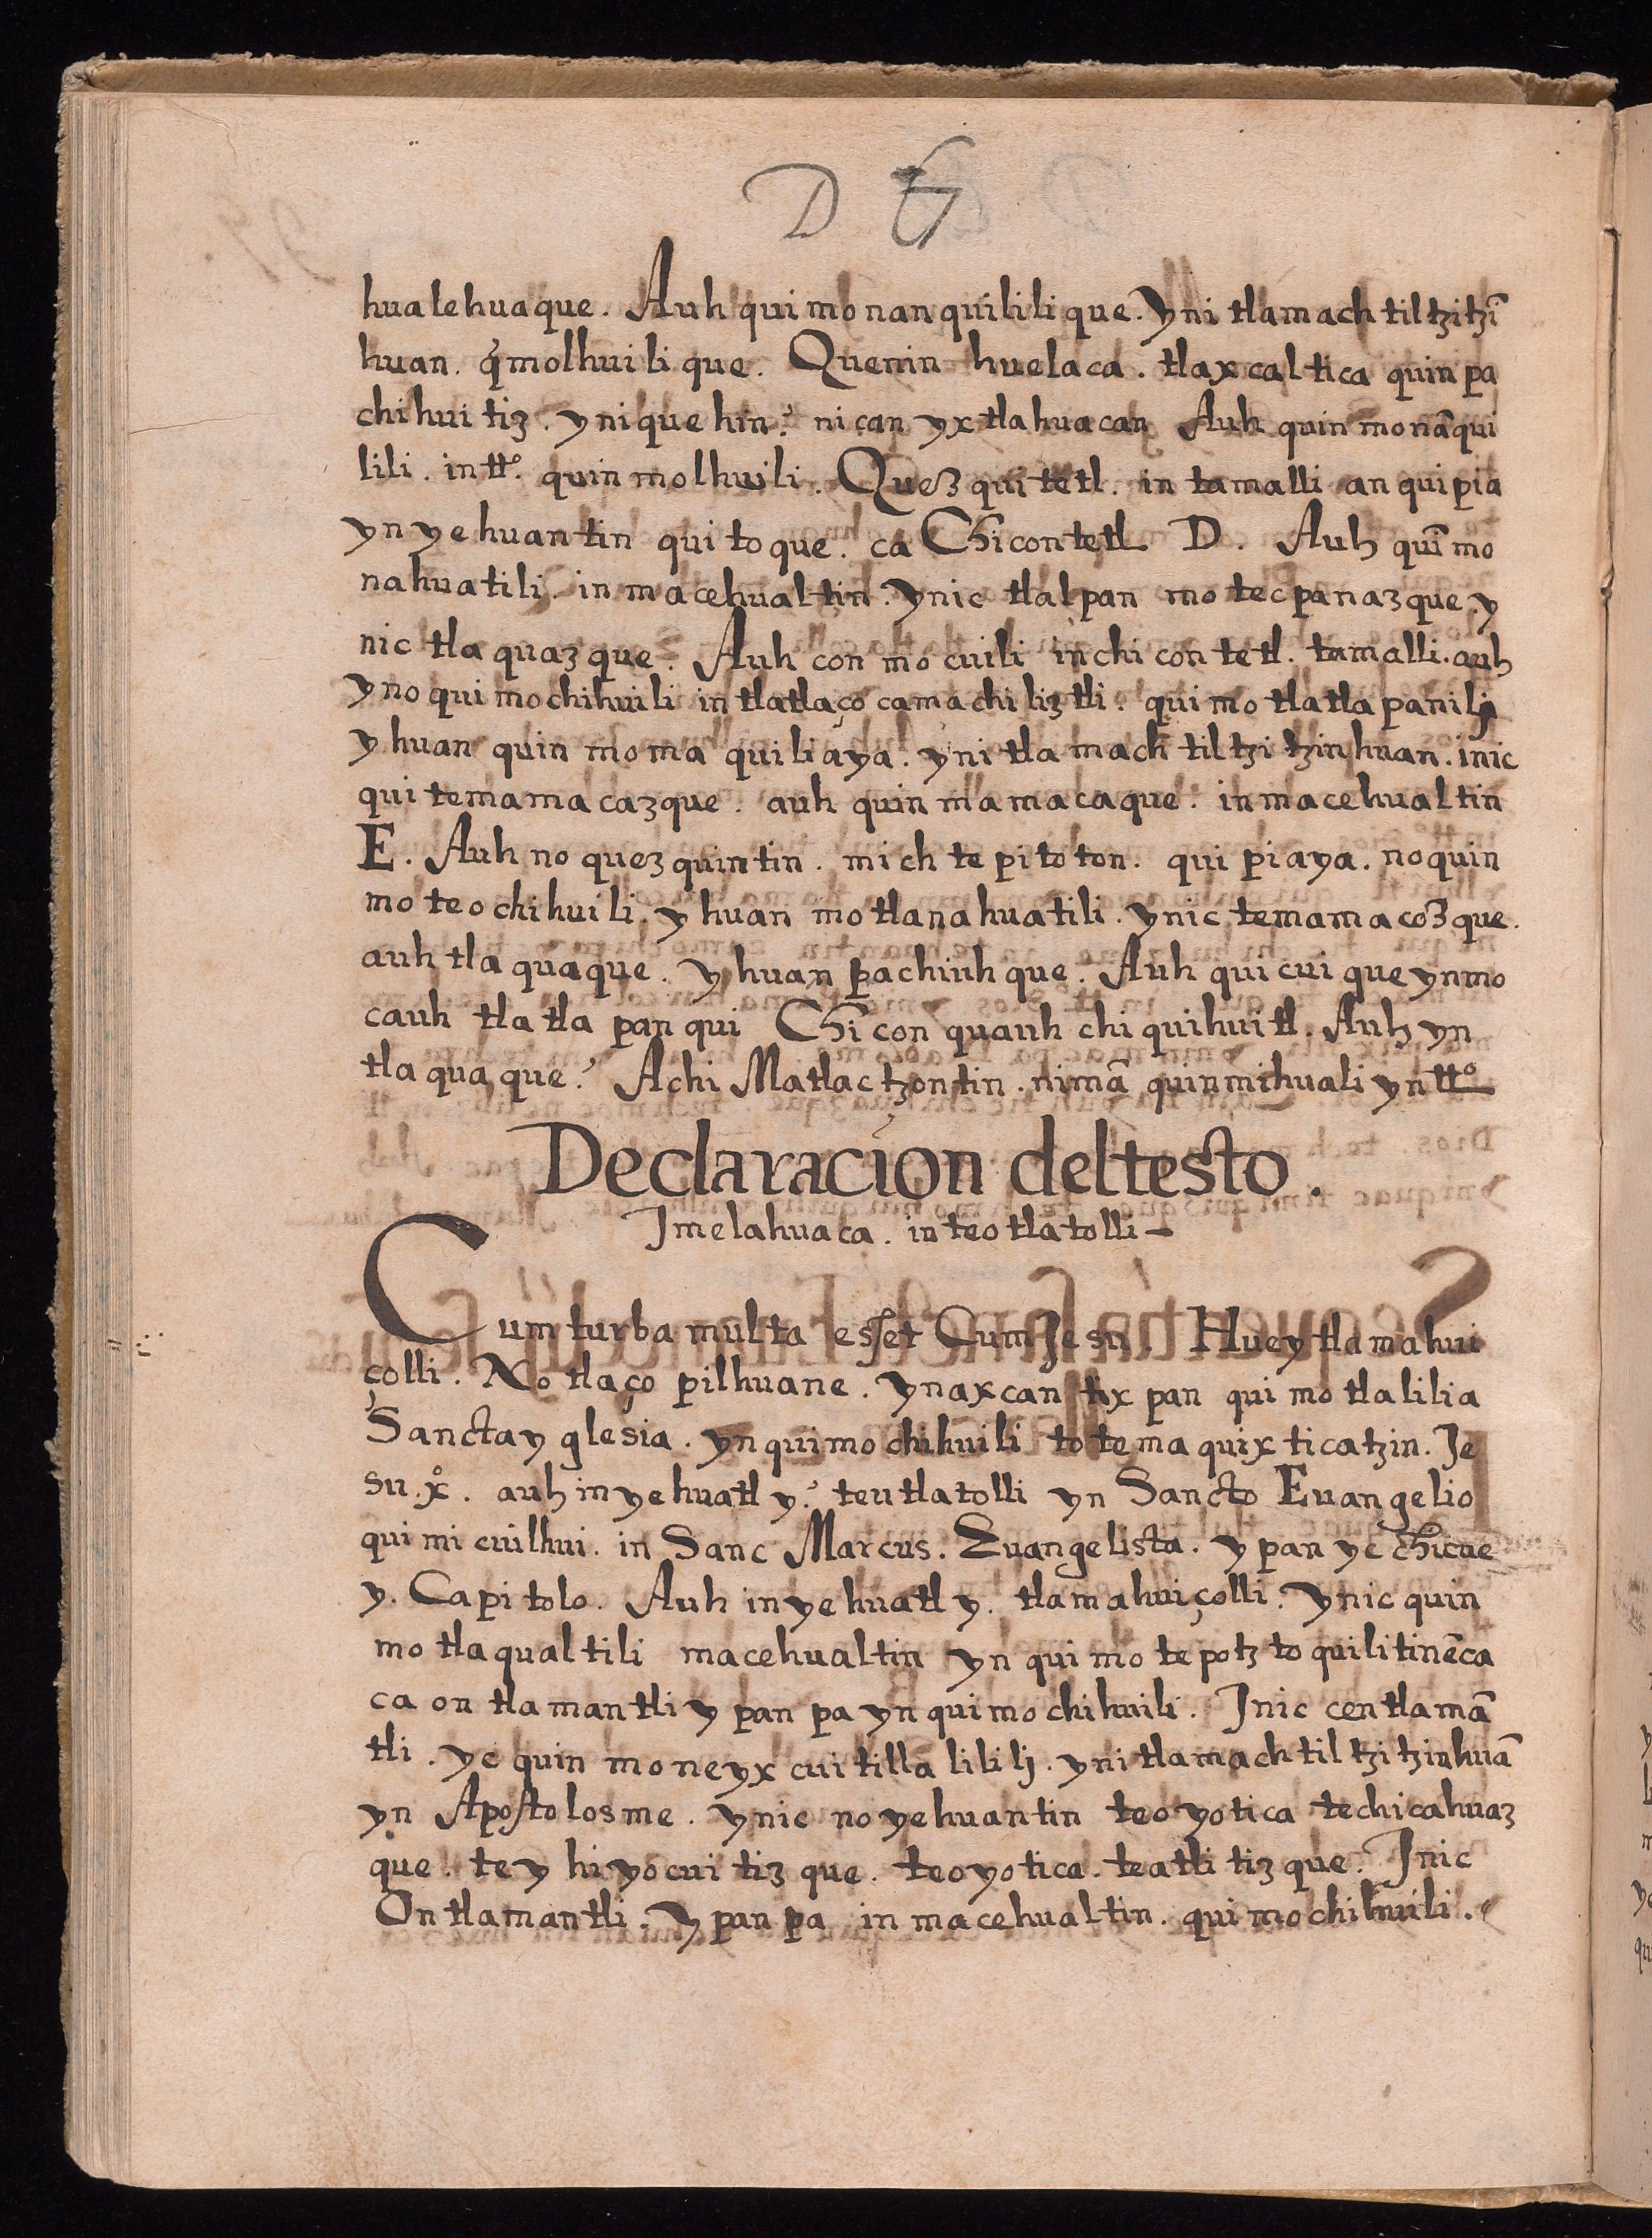 D G
hualehuaque. Auh quimonanquililique. Yni tlamachtiltzitzī
huan. q̄molhuilique. Quenin huelaca. tlaxcaltica quinpa
chihuitiz. yniquehin? nican yxtlahuacan Auh quinmonāqui
lili. in tt.º quinmolhuili. Quezquitetl. in tamalli anquipia
yn yehuantin quitoque. ca Chicontetl D. Auh quīmo
nahuatili. in macehualtin. Ynic tlalpan motecpanazque, y
nic tlaquazque. Auh conmocuili inchicontetl. tamalli. auh
yno quimochihuili in tlatlaçocamachiliztli. quimotlatlapanilj
yhuan quinmomaquiliaya. yni tlamachtiltzitzinhuan. inic
quitemamacazque. auh quinmamacaque. inmacehualtin
E. Auh no quezquintin. michtepitoton. quipiaya. noquin
moteochihuili. yhuan motlanahuatili. ynic temamacozque.
auh tlaquaque. yhuan pachiuhque. Auh quicuique ynmo
cauh tlatlapanqui Chiconquauhchiquihuitl. Auh yn
tlaquaque? Achi Matlactzontin. nimā quinmihuali yn tt.º
Declaracion deltesto.
Jmelahuaca. in teotlatolli –
Cum turba multa esset Cum Jesu. Huey tlamahui
çolli. No tlaçopilhuane. ynaxcan tixpan quimotlalilia
Sancta yglesia. yn quimochihuili totemaquixticatzin. Je
su. xº. auh inyehuatl y? teutlatolli yn Sancto Euangelio
quimicuilhui. in Sanc Marcus. Euangelista. ypan yc chicue
y. Capitolo. Auh inyehuatl y. tlamahuiçolli. Ynic quin
motlaqualtili macehualtin yn quimotepotztoquilitinēca
ca ontlamantli ypanpa yn quimochihuili. Jnic centlamā
tli. yc quinmoneyxcuitillalililj. yni tlamachtiltzitzinhuā
yn Apostolosme. ynic no yehuantin teoyotica techicahuaz
que. teyhiyocuitizque. teoyotica. teatlitizque. Jnic
Ontlamantli. Ypanpa in macehualtin. quimochihuili.